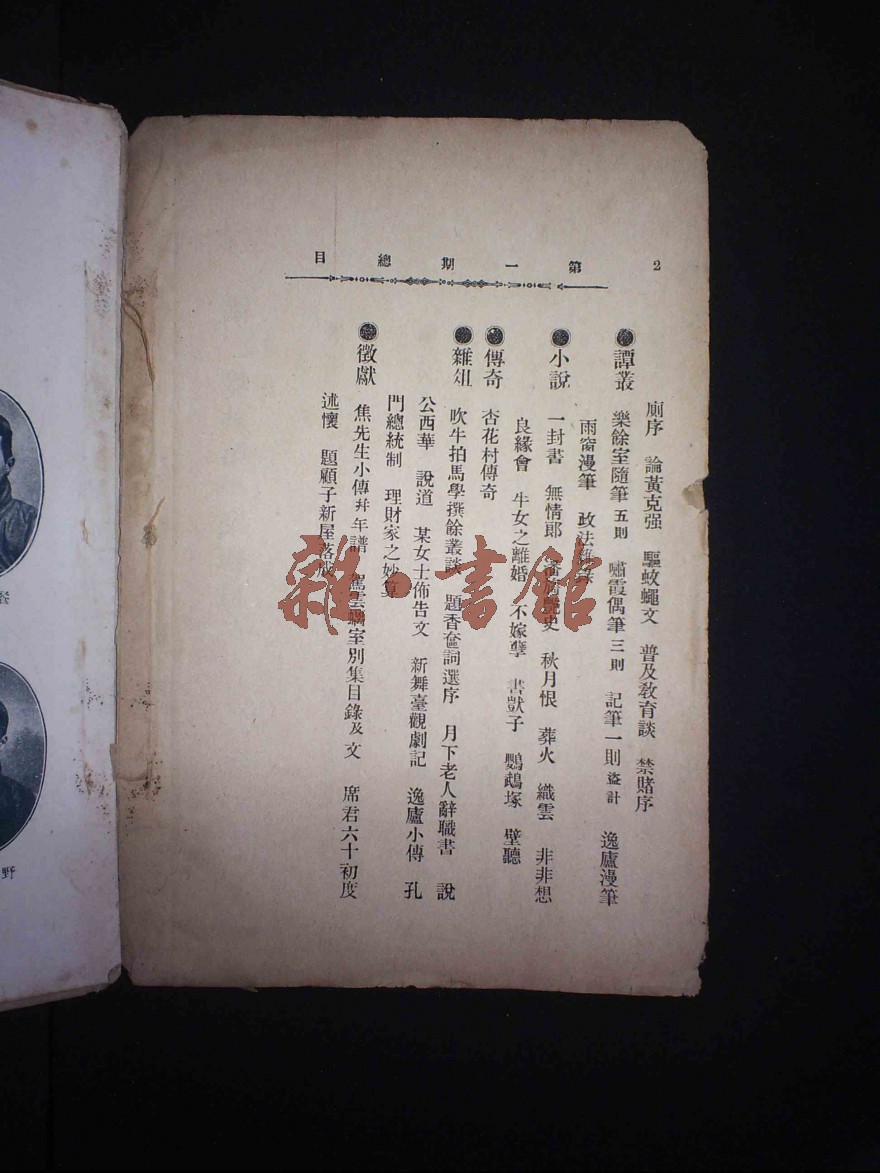 2
第一期總目
廁序 論黃克强 驅蚊蠅文 普及教育談 禁賭序
譚叢 樂餘室隨筆五則 嘯霞偶筆三則 記筆一則盜計 逸廬漫筆
雨窗漫筆 政法
小說 一封書 無情郞 史 秋月恨 葬火 織雲 非非想
良緣會 牛女之離婚 不嫁孽 書獃子 鸚鵡塚 壁聽
傳奇 杏花村傳奇
雜俎 吹牛拍馬學撰餘叢談 題香奩詞選序 月下老人辭職書 說
公西華 說道 某女士佈告文 新舞臺觀劇記 逸廬小傳 孔
門總統制 理財家之妙算
徵獻 焦先生小傳并年譜 駕雲螭室別集目錄及文 席君六十初度
述懷 題顧子新屋落成
野
雜·書館